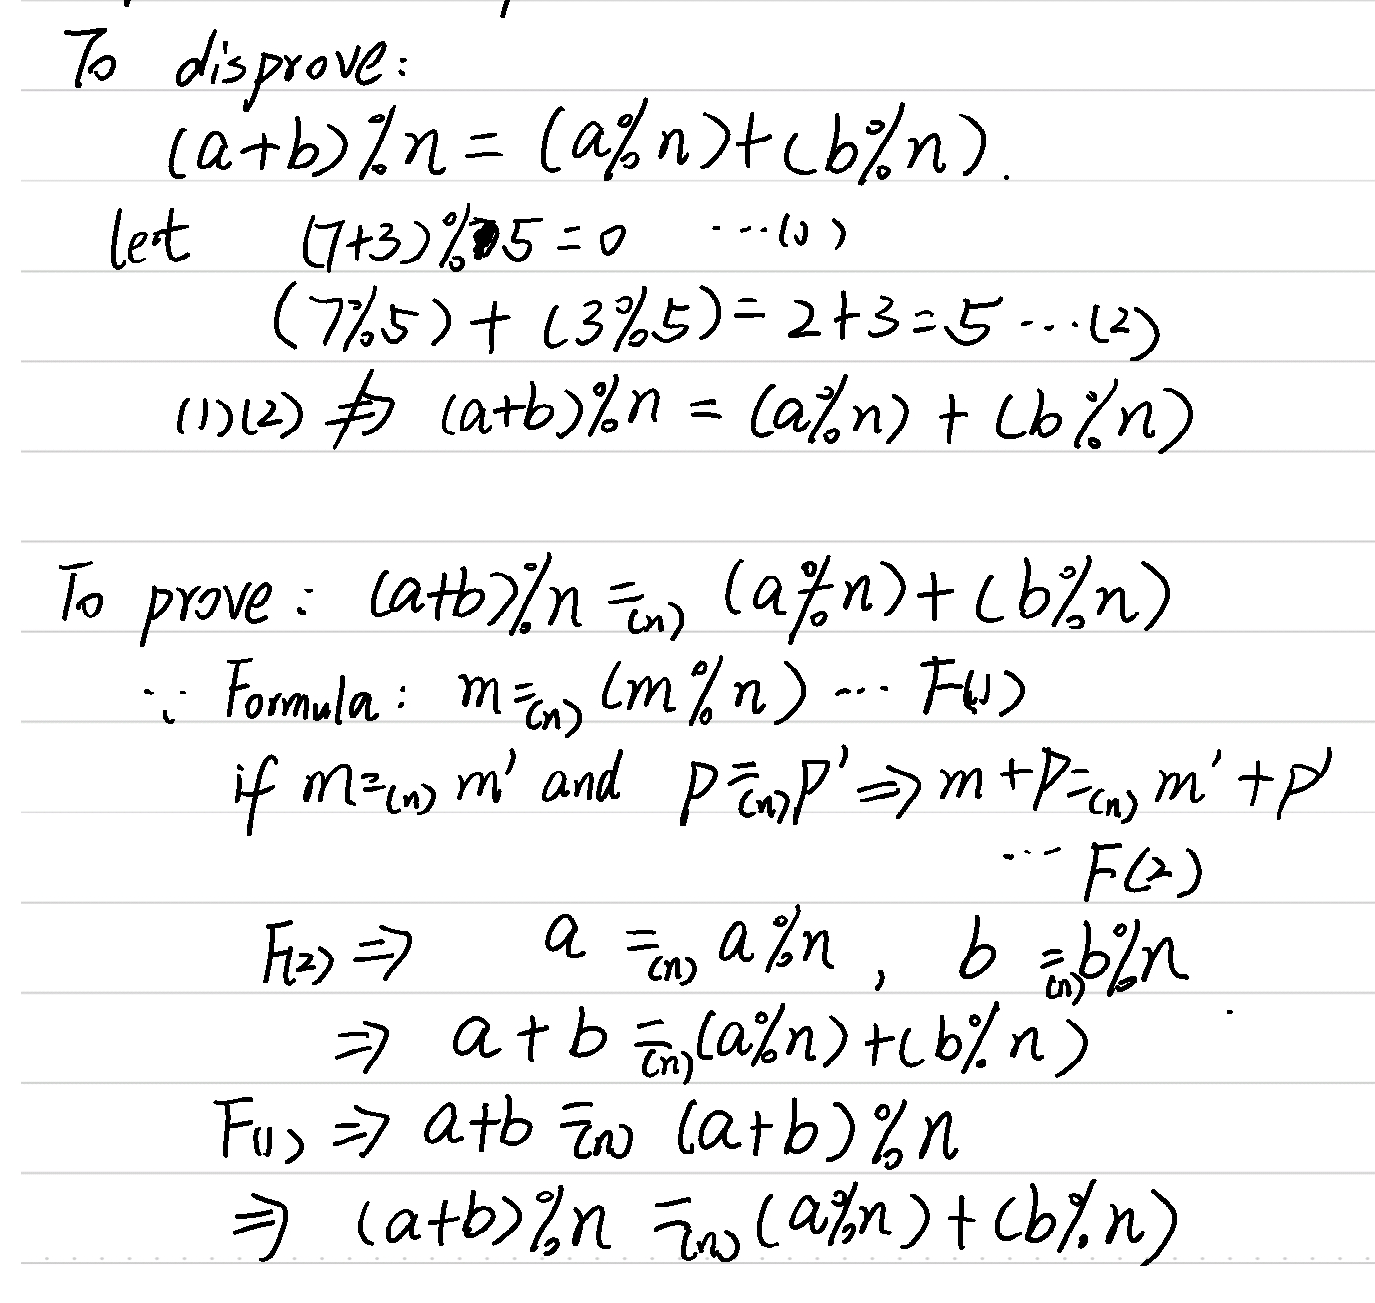 To disprove:
(a+b)%n = (a%n)+(b%n).
let (7+3)%5=0 ...(1)
(7%5)+(3%5)=2+3=5 ...(2)
(1)(2) ⇏ (a+b)%n = (a%n) + (b%n)
To prove: (a+b)%n =(n) (a%n)+(b%n)
∵ Formula: m =(n) (m%n) ... F(1)
if m =(n) m' and p =(n) p' ⇒ m+p =(n) m'+p'
... F(2)
F(2) ⇒ a =(n) a%n, b =(n) b%n
⇒ a+b =(n) (a%n)+(b%n)
F(1) ⇒ a+b =(n) (a+b)%n
⇒ (a+b)%n =(n) (a%n)+(b%n)